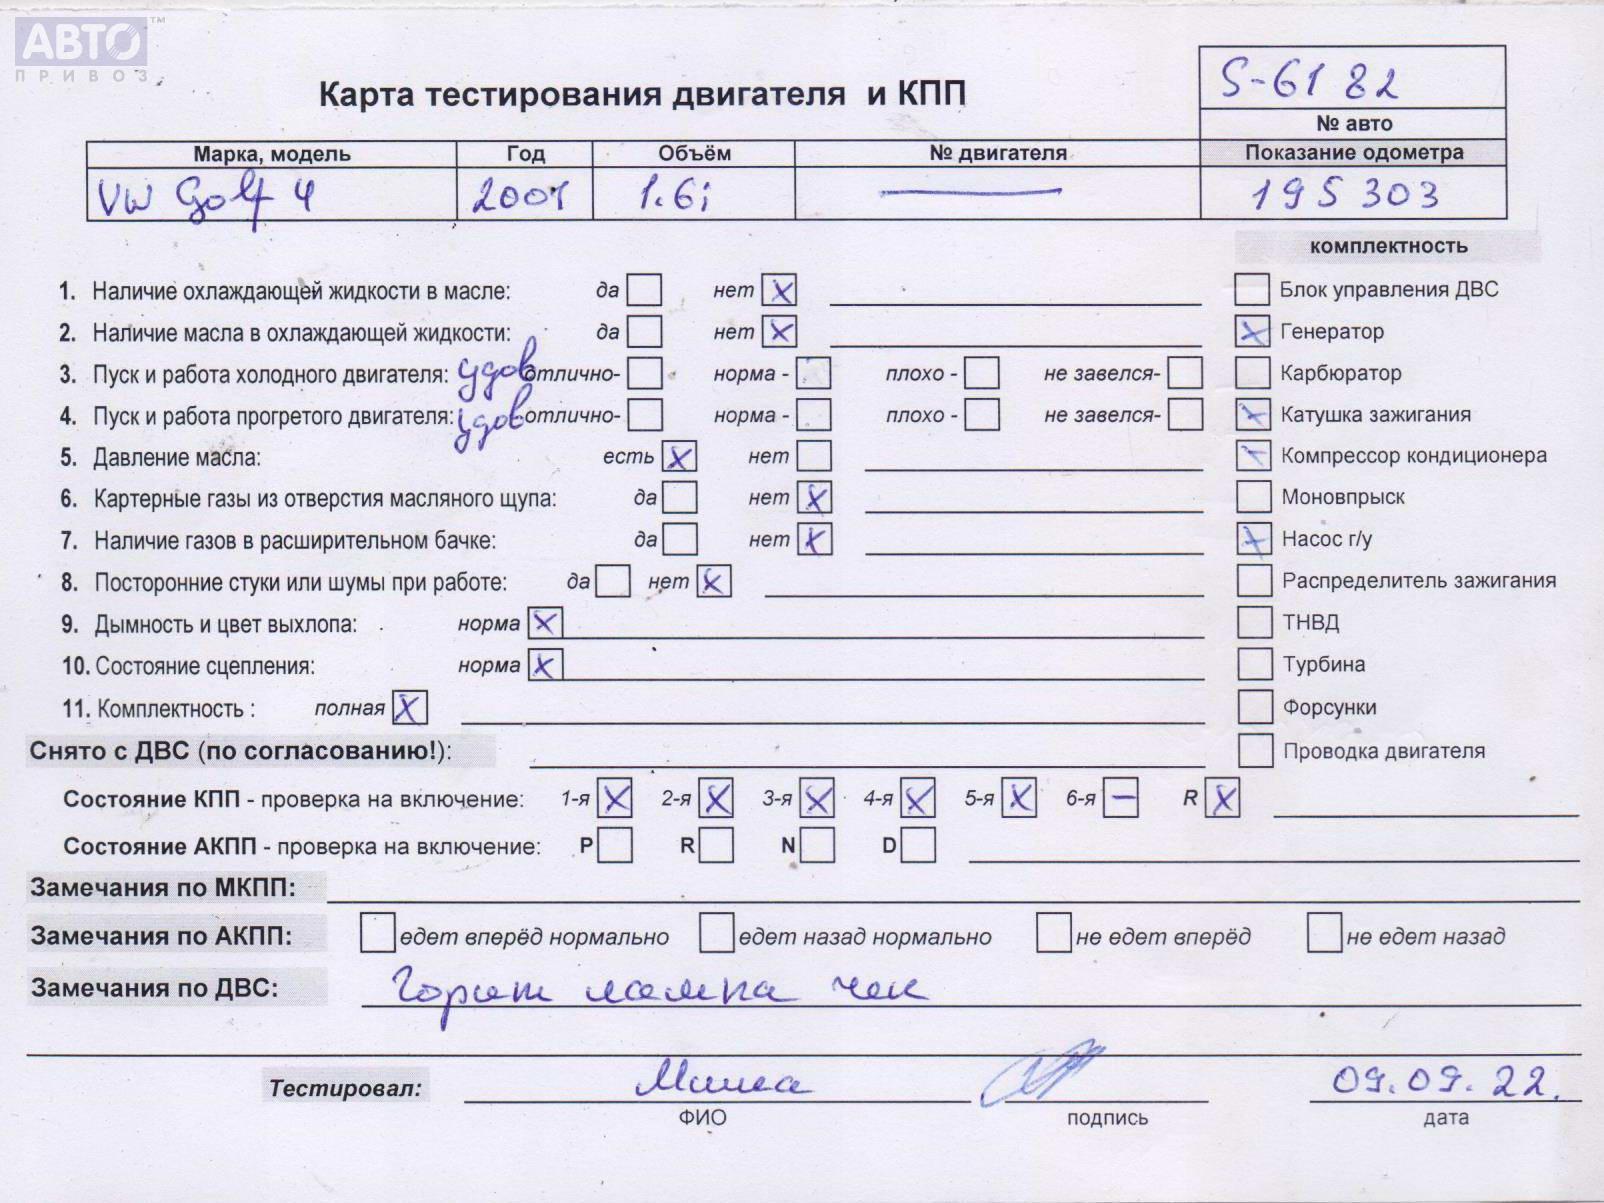 АВТО™
ПРИВОЗ
S-6182
Карта тестирования двигателя и КПП
№ авто
Марка, модель Год Объём № двигателя Показание одометра
VW Golf 4 2001 1.6i — 195 303
комплектность
1. Наличие охлаждающей жидкости в масле: да нет X Блок управления ДВС
2. Наличие масла в охлаждающей жидкости: да нет X X Генератор
3. Пуск и работа холодного двигателя: удов отлично- норма - плохо - не завелся- Карбюратор
4. Пуск и работа прогретого двигателя: удов отлично- норма - плохо - не завелся- X Катушка зажигания
5. Давление масла: есть X нет X Компрессор кондиционера
6. Картерные газы из отверстия масляного щупа: да нет X Моновпрыск
7. Наличие газов в расширительном бачке: да нет X X Насос г/у
8. Посторонние стуки или шумы при работе: да нет X Распределитель зажигания
9. Дымность и цвет выхлопа: норма X ТНВД
10. Состояние сцепления: норма X Турбина
11. Комплектность : полная X Форсунки
Снято с ДВС (по согласованию!): Проводка двигателя
Состояние КПП - проверка на включение: 1-я X 2-я X 3-я X 4-я X 5-я X 6-я — R X
Состояние АКПП - проверка на включение: P R N D
Замечания по МКПП:
Замечания по АКПП: едет вперёд нормально едет назад нормально не едет вперёд не едет назад
Замечания по ДВС: Горит лампа чек
Тестировал: Миша 09.09.22.
ФИО подпись дата